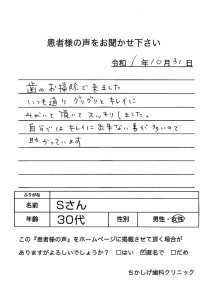 患者様の声をお聞かせ下さい
令和 1 年 10 月 31 日
歯のお掃除で来ました
いつも通り グリグリとキレイに
して頂いて スッキリしました。
自分では キレイに出来ない事が多いので
助かっています
ふりがな
名前 Sさん
年齢 30代 性別 男性・女性
この『患者様の声』をホームページに掲載させて頂く場合が
ありますがよろしいでしょうか? □はい ☑匿名で □だめ
ちかしげ歯科クリニック